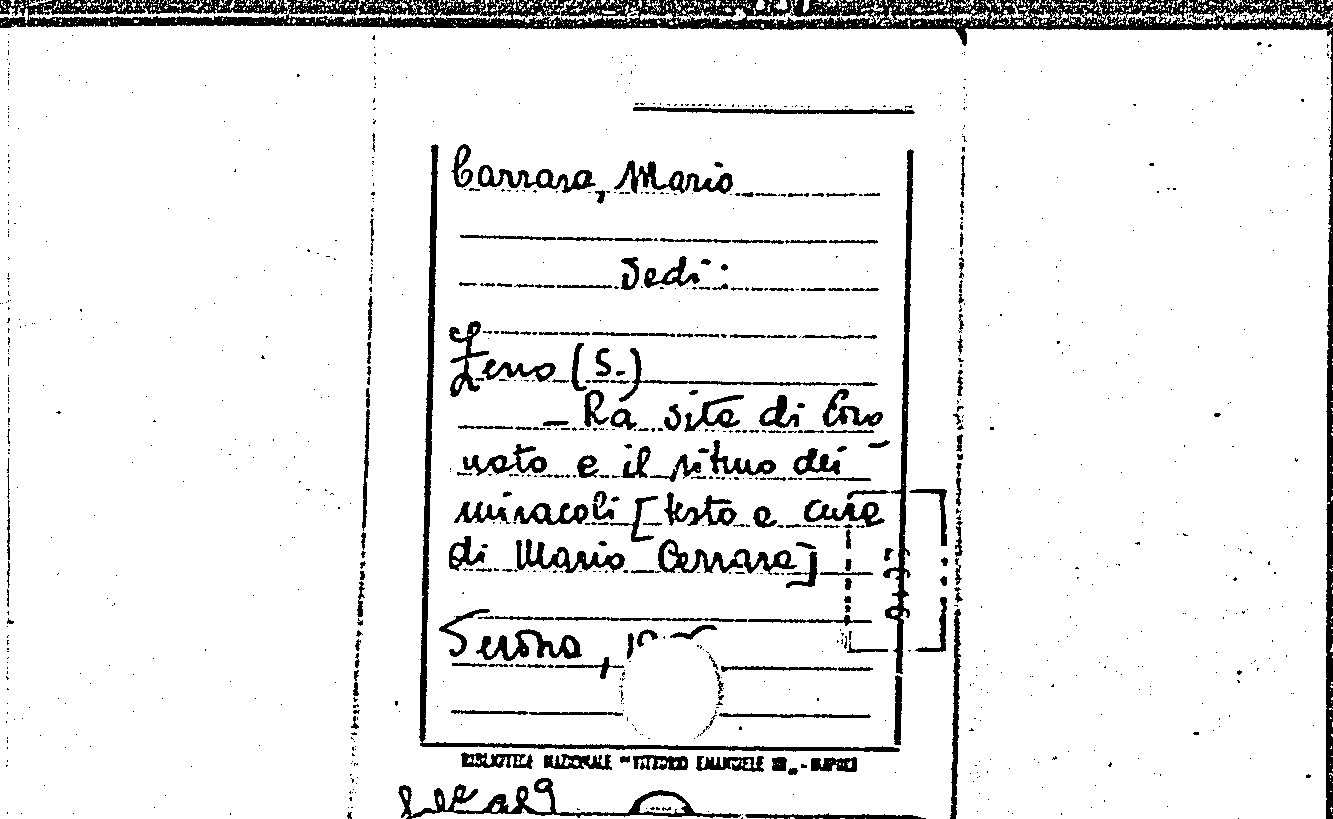 Carrara, Mario
Vedi:
Zeno (S.)
– La vita di Coro-
nato e il ritmo dei
miracoli [testo a cura
di Mario Carrara]
Verona,
BIBLIOTECA NAZIONALE "VITTORIO EMANUELE III" - NAPOLI